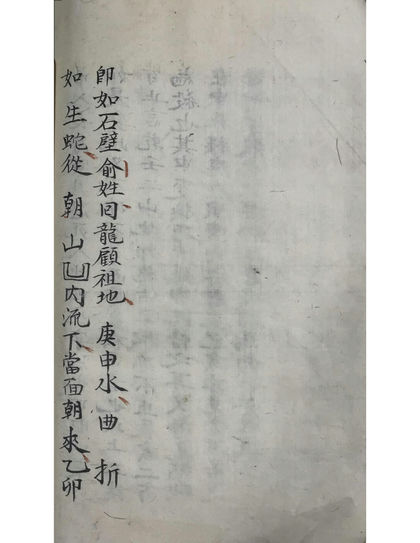 即如石壁俞姓囘龍顧祖地庚申水曲折
如生蛇從朝山凹内流下當面朝來乙卯